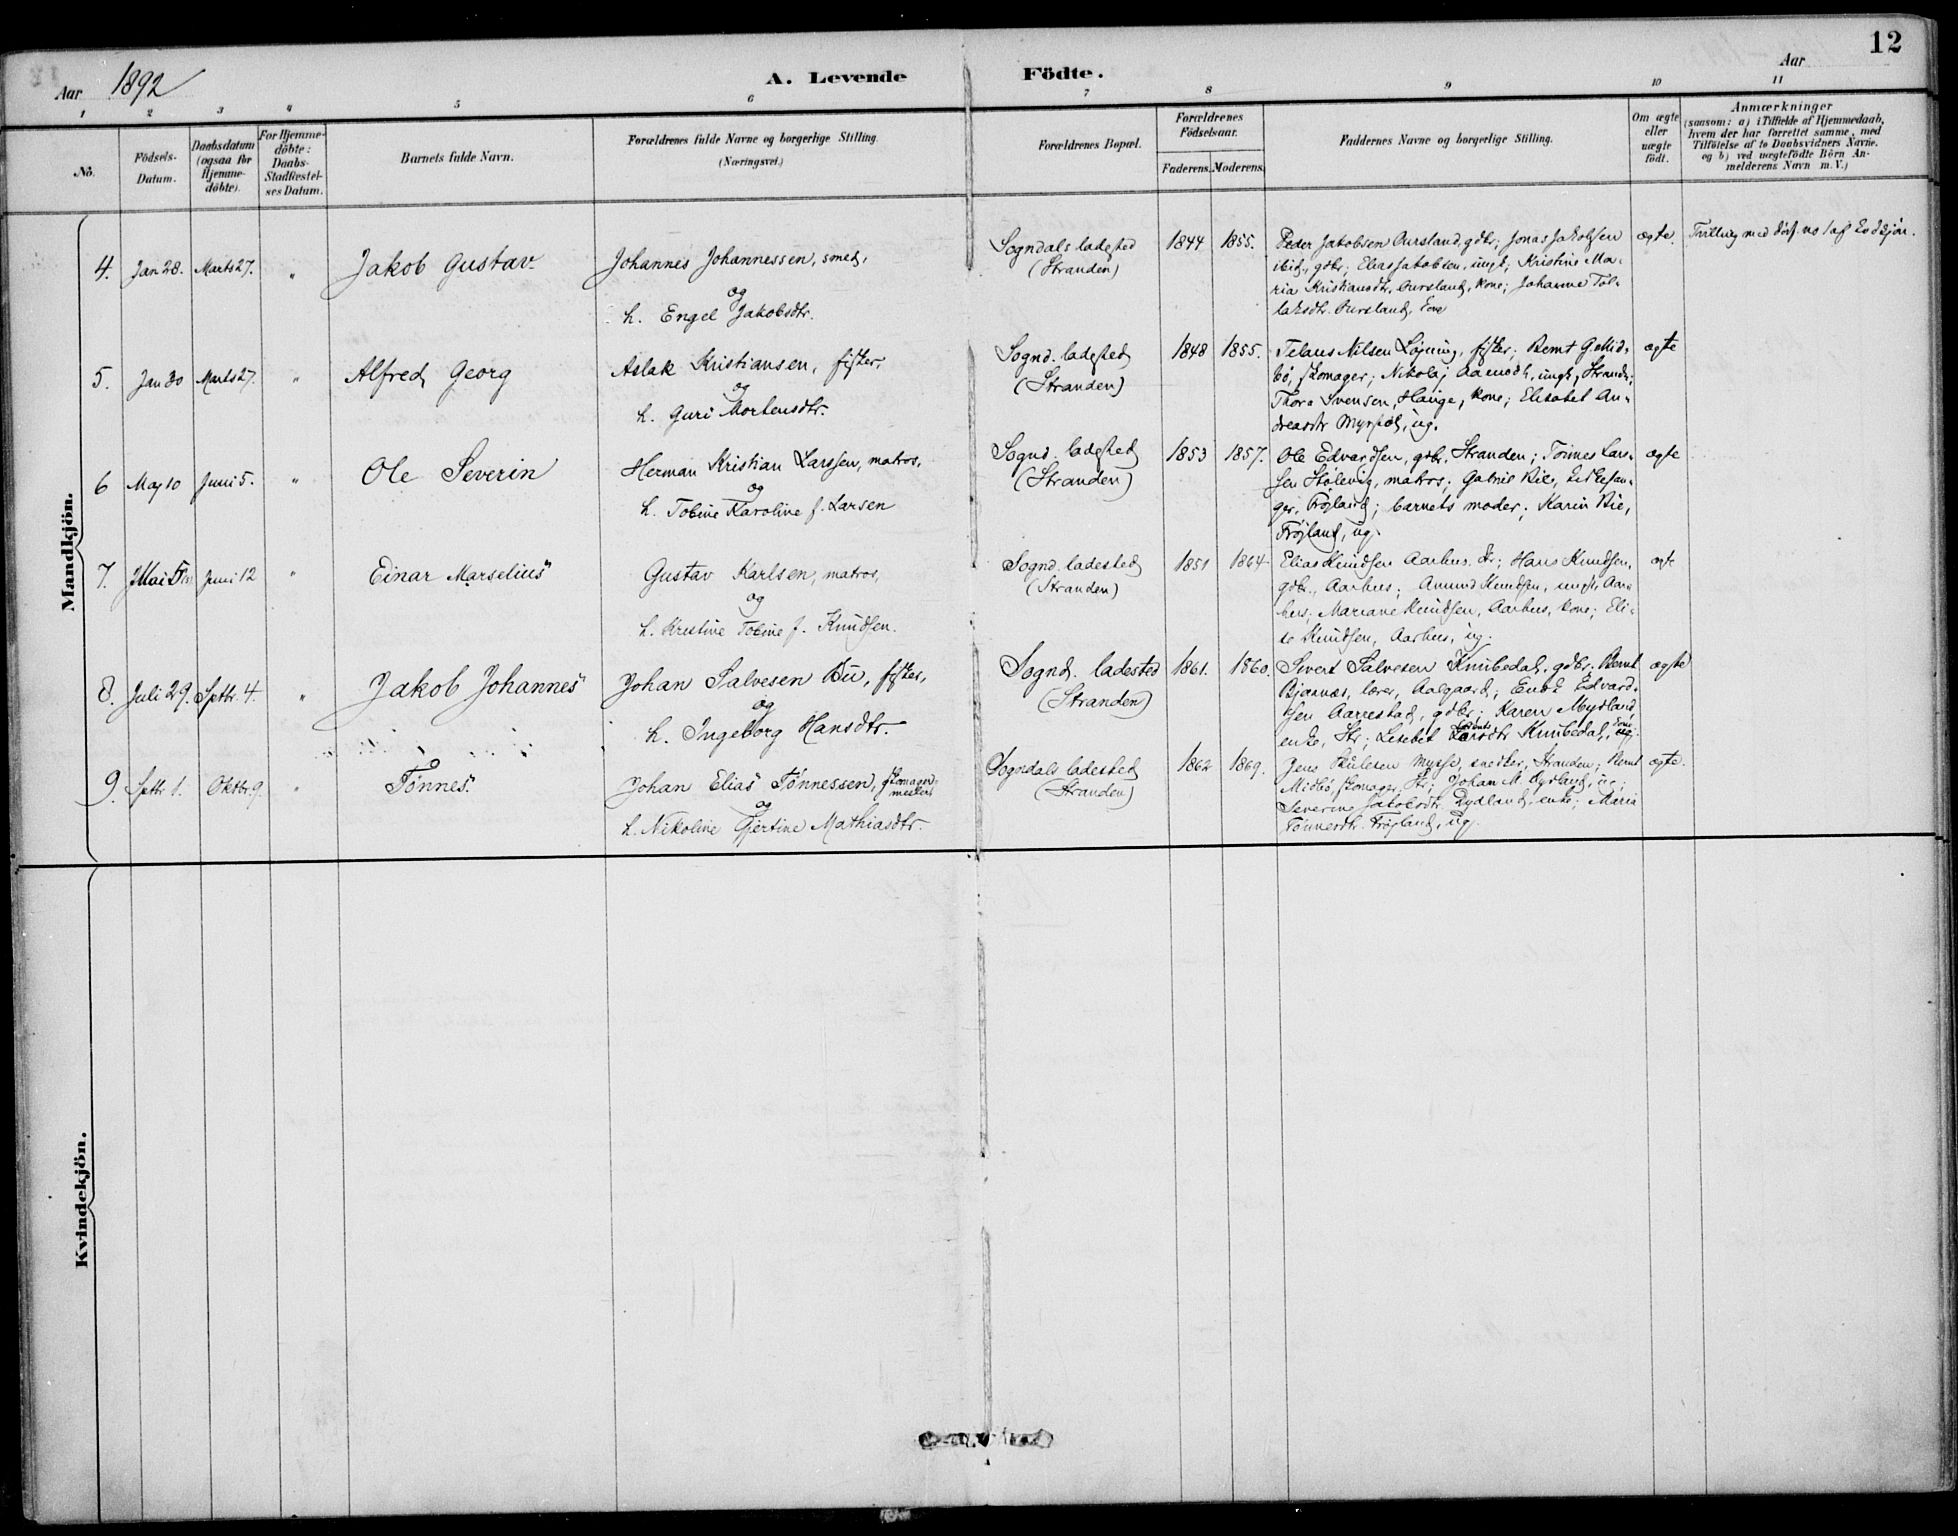 12
Aar 1892
A. Levende Födte.
Aar
1 2 3 4 5 6 7 8 9 10 11
No.
Födsels-
Datum.
Daabsdatum
(ogsaa for
Hjemme-
döbte).
For Hjemme-
döbte:
Daabs-
Stadfæstel-
ses Datum.
Barnets fulde Navn.
Forældrenes fulde Navne og borgerlige Stilling.
(Næringsvei.)
Forældrenes Bopæl.
Forældrenes
Födselsaar.
Faderens. Moderens.
Faddernes Navne og borgerlige Stilling.
Om ægte
eller
uægte
födt.
Anmærkninger
(saasom: a) i Tilfælde af Hjemmedaab,
hvem der har forrettet samme, med
Tilföielse af to Daabsvidners Navne.
og b) ved uægtefödte Börn An-
melderens Navn m. V.)
Mandkjön.
4. Jan 28. Marts 27. " Jakob Gustav
Johannes Johannessen, smed,
og
h. Engel Jakobsdtr.
Sogndals ladested
(Stranden)
1844 1855.
Peder Jakobsen Oursland, gdbr; Jonas Jakobsen
ibid., gdbr; Elias Jakobsen, ungk; Kristine Ma-
ria Kristiansdtr. Oursland, kone; Johanne Tol-
laksdtr. Oursland,
ægte.
Tvilling med dödf. no 1 af
5. Jan 30 Marts 27. " Alfred Georg
Aslak Kristiansen, fisker,
og
h. Guri Mortensdtr.
Sognd. ladested
(Stranden)
1848 1855.
Nilsen Löining, fisker; Bernt G Mid-
bö, skomager; Nikolaj Aamodt, ungk, Strand;
Thora Svensen, Hauge, kone; Elisabet An-
dreasdtr, ug.
ægte
6 May 10 Juni 5. " Ole Severin
Herman Kristian Larssen, matros,
og
h. Tobine Karoline f. Larsen
Sognd. ladested
(Stranden)
1853 1857.
Ole Edvardsen, gdbr, Stranden; Tönnes Lar-
sen Stölevig, matros; Gabriel Bie, kirkesan-
ger, Fröjland; barnets moder; Karin Bie,
Fröjland, ug.
ægte
7. Mai 5 Juni 12 " Einar Marselius
Gustav Karlsen, matros,
og
h. Kristine Tobine f. Knudsen.
Sognd. ladested
(Stranden)
1851 1864
Elias Knudsen Aarhus, ; Hans Knudsen,
gdbr., Aarhus; Amund Knudsen, ungk, Aar-
hus; Mariane Knudsen, Aarhus, kone; Eli-
se Knudsen, Aarhus, ug.
ægte
8. Juli 29. Septbr. 4. " Jakob Johannes
Johan Salvesen Bu, fisker,
og
h. Ingeborg Hansdtr.
Sognd. ladested
(Stranden)
1861. 1860.
Sivert Salvesen Knubedal, gdbr; Bernt
Bjørnæs, lærer, Aalgaard; Enok Edvard-
sen Aarrestad, gdbr; Karen Mydland
enke, Str; Lisebet Knubedal, ug.
ægte
9. Septbr 1. Oktbr. 9. " Tönnes
Johan Elias Tönnessen, skomager-
mester,
og
h. Nikoline Gjertine Mathiasdtr.
Sogndals ladested
(Stranden)
1862 1869.
Jens Skulesen Mysse, snedker, Stranden; Bernt
Midbö, skomager, Str; Johan M. Dydland, ug;
Severine Jakobsdtr. Dydland, enke; Maria
Tönnesdtr. Fröjland, ug.
ægte.
Kvindekjön.